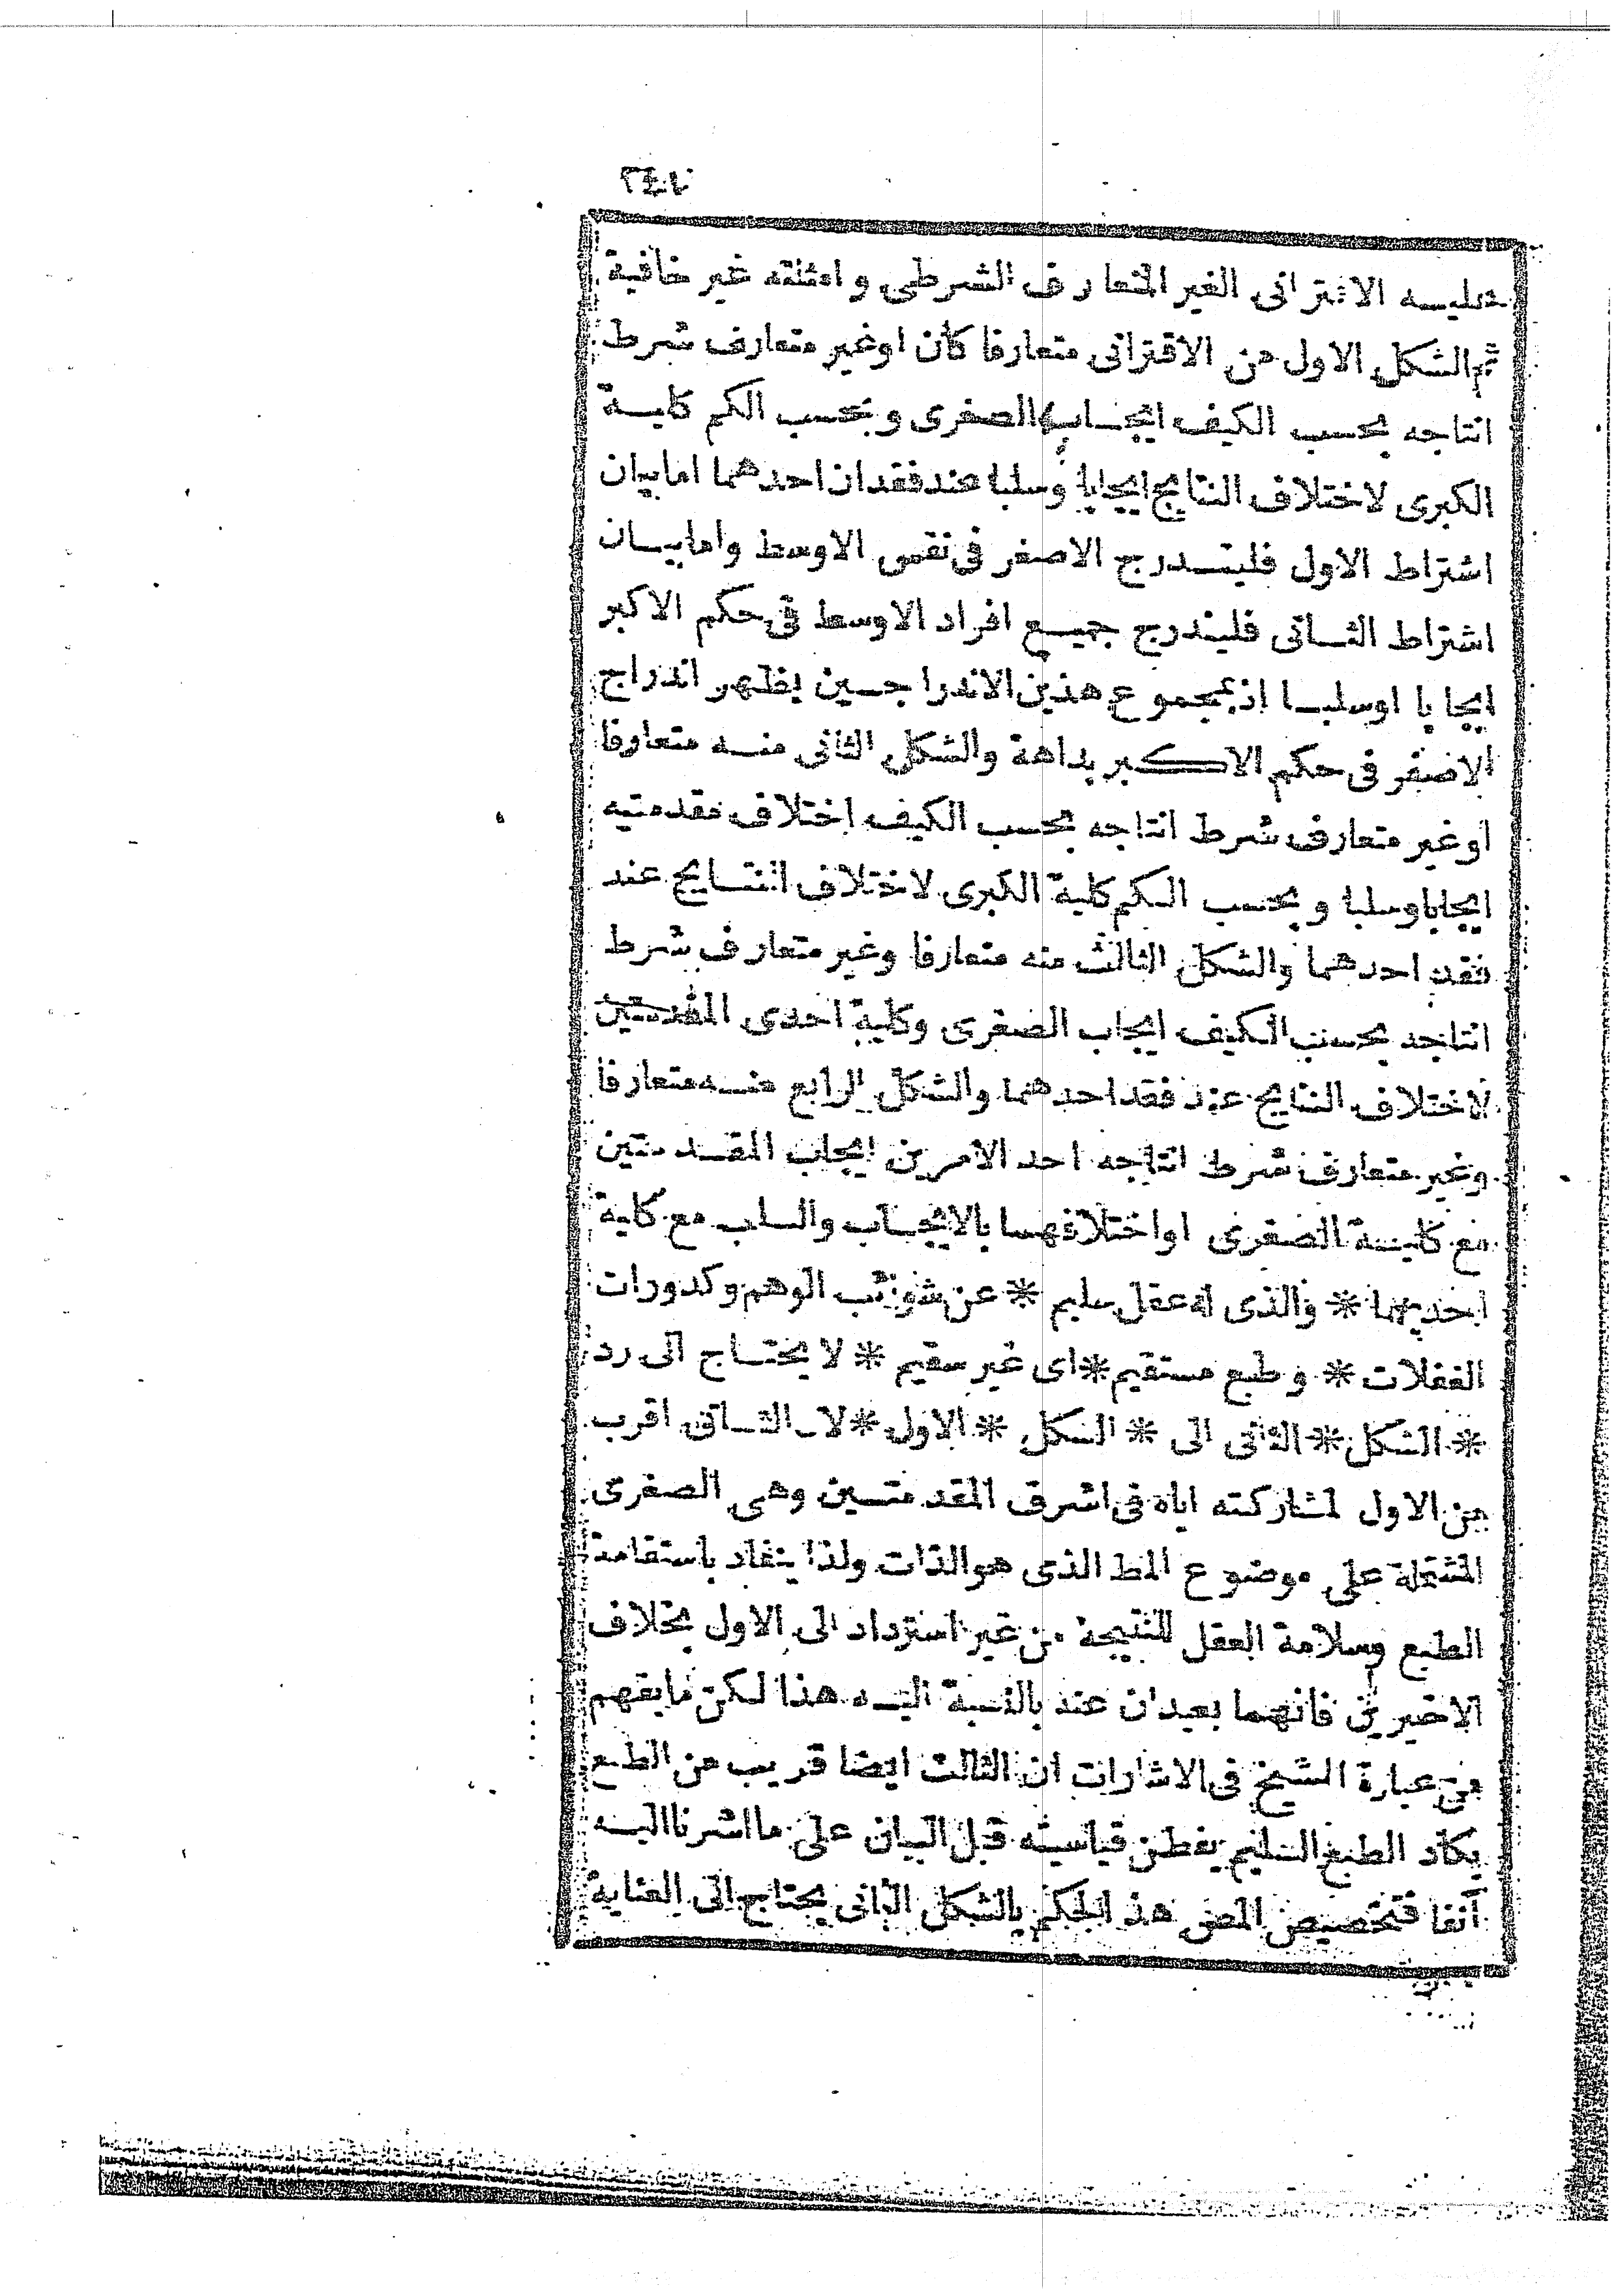 عليه الاقترانى الغير المتعارف الشرطى وامثلته غير خافية
ثم الشكل الاول من الاقترانى متعارفا كان اوغير متعارف شرط
انتاجه بحسب الكيف ايجاب الصغرى وبحسب الكم كلية
الكبرى لاختلاف النتايج ايجابا وسلبا عند فقدان احدهما اما بيان
اشتراط الاول فليندرج الاصغر فى نفس الاوسط واما بيان
اشتراط الثانى فليندرج جميع افراد الاوسط فى حكم الاكبر
ايجابا اوسلبا اذ بمجموع هذين الاندراجين يظهر اندراج
الاصغر فى حكم الاكبر بداهة والشكل الثانى منه متعارفا
اوغير متعارف شرط انتاجه بحسب الكيف اختلاف مقدمتيه
ايجابا وسلبا وبحسب الكم كلية الكبرى لاختلاف النتايج عند
فقد احدهما والشكل الثالث منه متعارفا وغير متعارف شرط
انتاجه بحسب الكيف ايجاب الصغرى وكلية احدى المقدمتين
لاختلاف النتايج عند فقد احدهما والشكل الرابع منه متعارفا
وغير متعارف شرط انتاجه احد الامرين ايجاب المقدمتين
مع كلية الصغرى اواختلافهما بالايجاب والسلب مع كلية
احديهما * والذى له عقل سليم * عن شوائب الوهم وكدورات
الغفلات * وطبع مستقيم * اى غير سقيم * لا يحتاج الى رد
* الشكل * الثانى الى * الشكل * الاول * لان الثانى اقرب
من الاول لمشاركته اياه فى اشرف المقدمتين وهى الصغرى
المشتملة على موضوع المط الذى هو الذات ولذا ينقاد باستقامة
الطبع وسلامة العقل للنتيجة من غير استرداد الى الاول بخلاف
الاخيرين فانهما بعيدان عنه بالنسبة اليه هذا لكن ما يفهم
من عبارة الشيخ فى الاشارات ان الثالث ايضا قريب من الطبع
يكاد الطبع السليم يفطن قياسيته قبل البيان على ما اشرنا اليه
آنفا فتخصيص المص هذ الحكم بالشكل الثانى يحتاج الى العناية